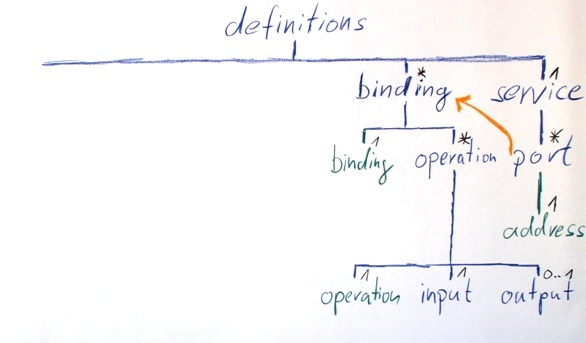 definitions
* 1
binding service
1 * *
binding operation port
1
address
1 1 0..1
operation input output